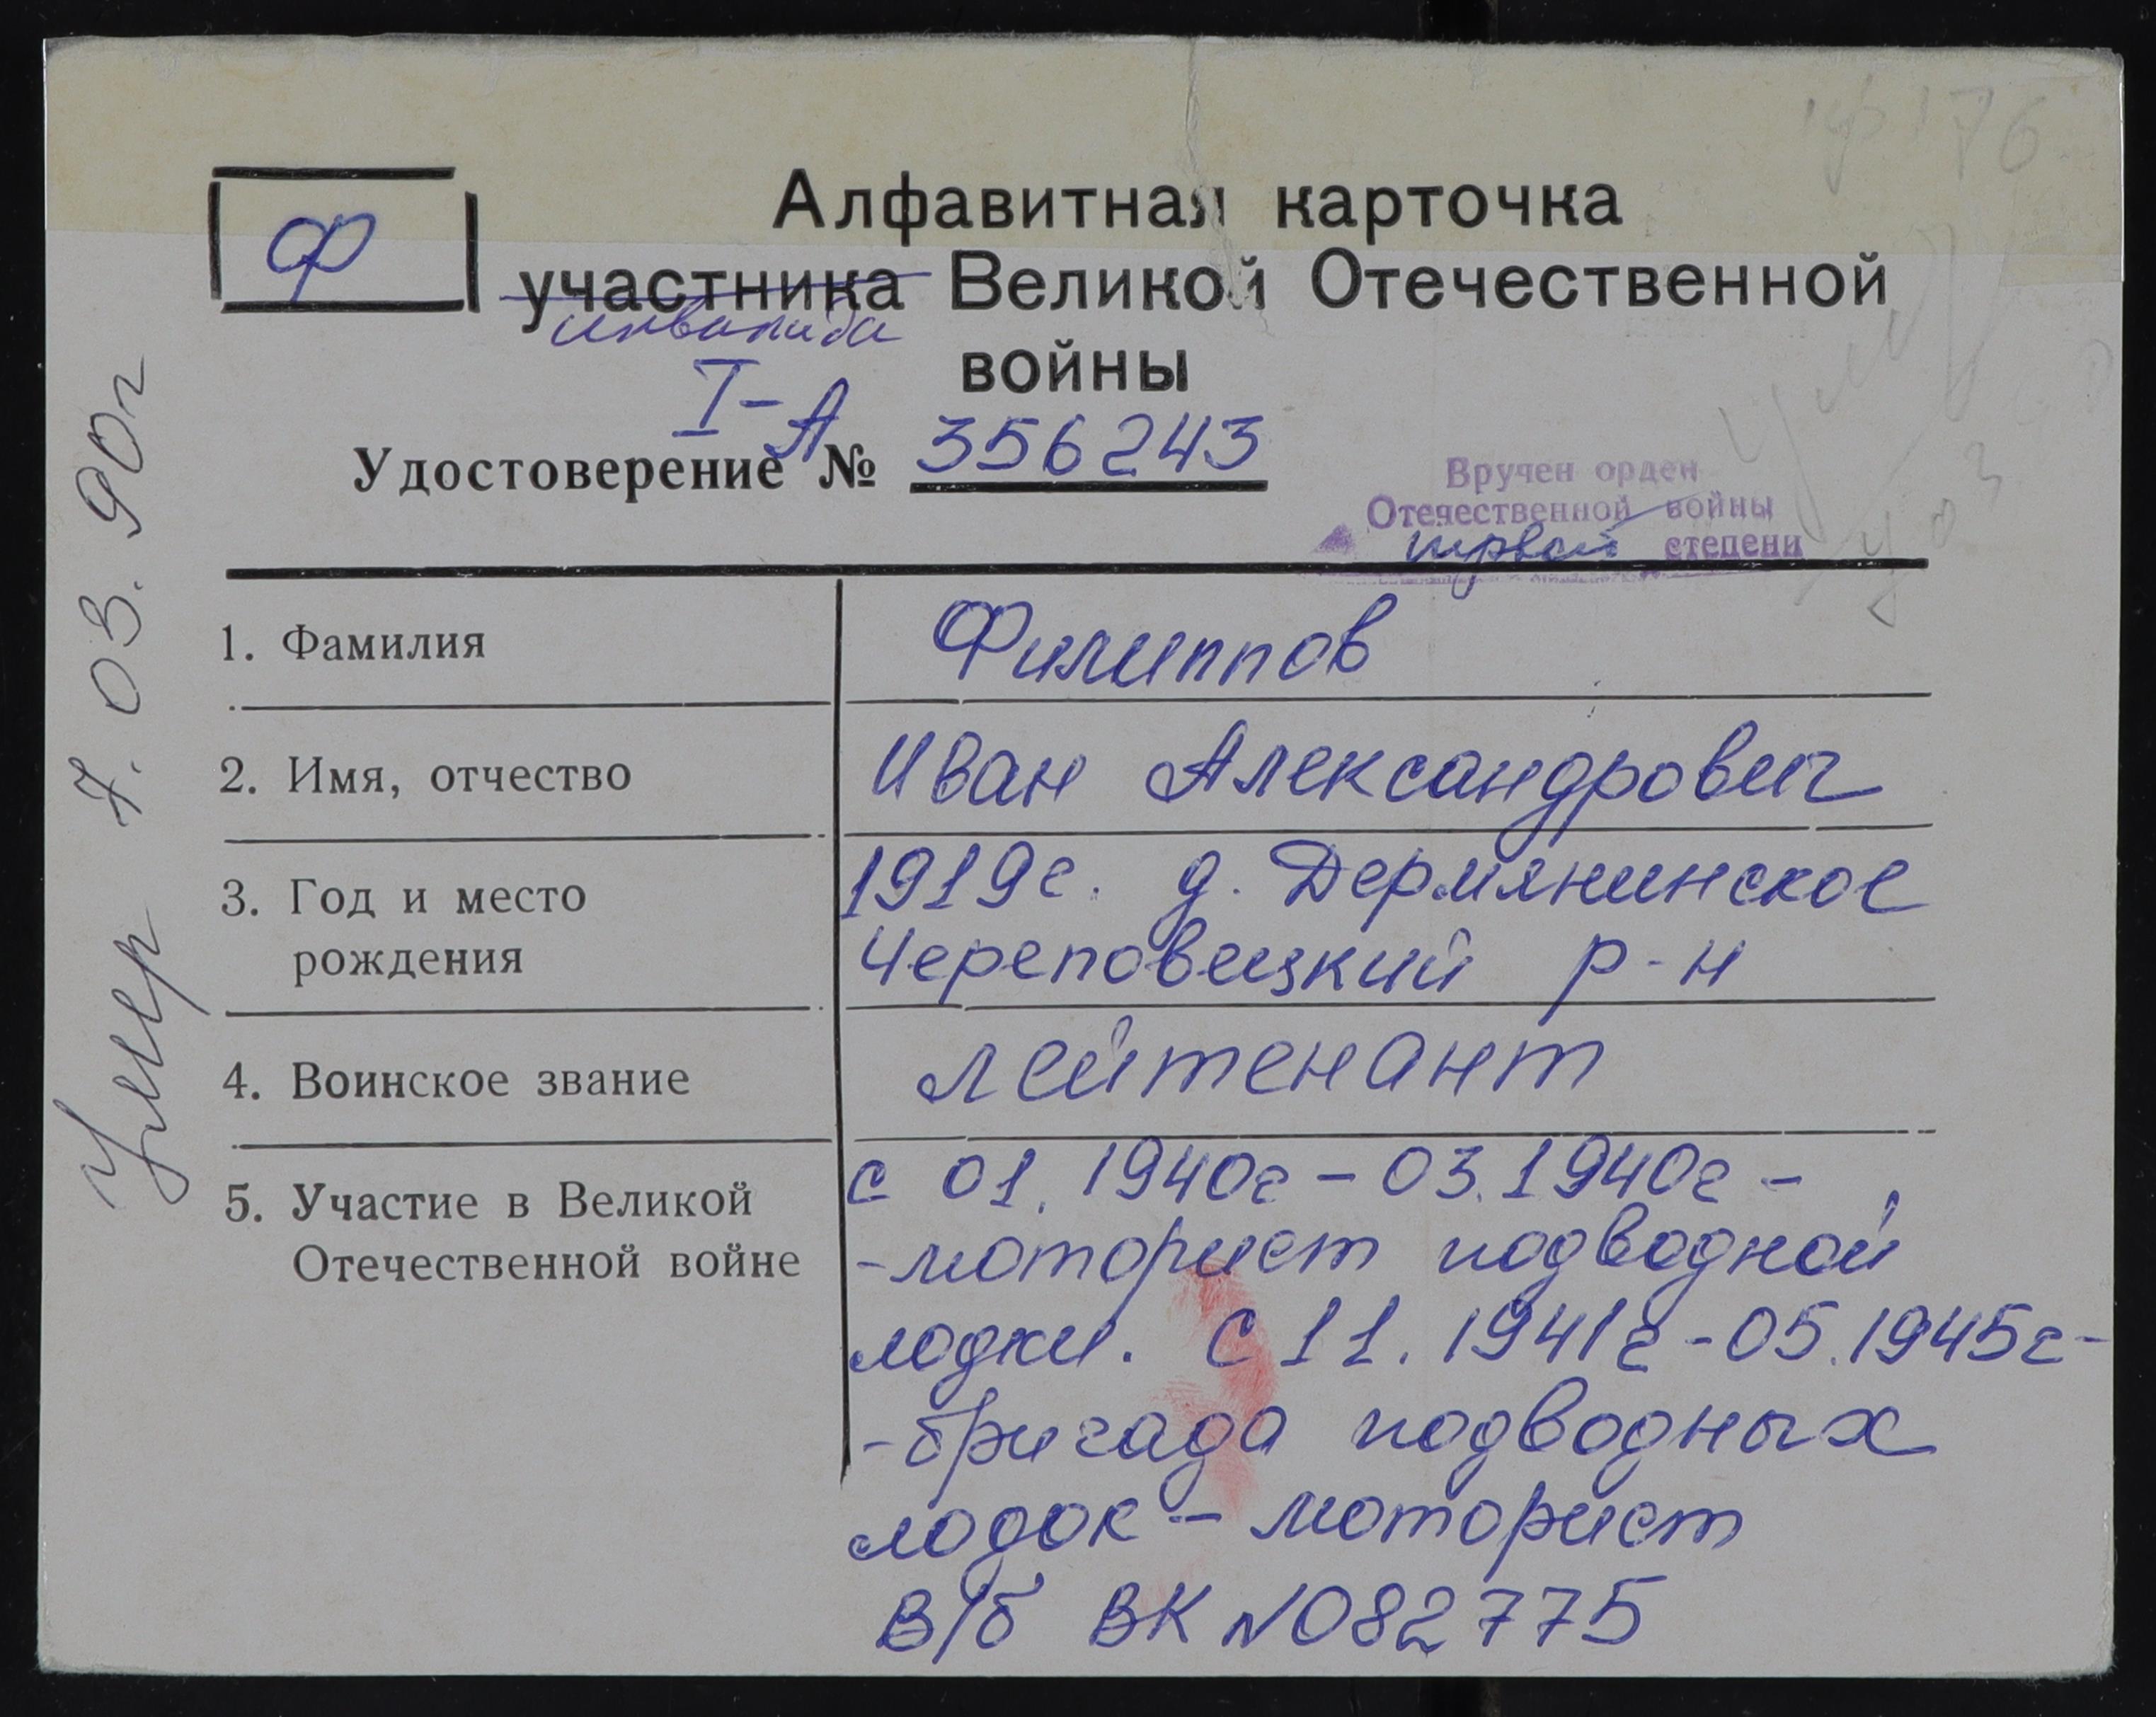 Ф
Алфавитная карточка
участника Великой Отечественной
инвалида
войны
I-А
Удостоверение № 356243
Вручен орден
Отечественной войны
первой степени
1. Фамилия
Филиппов
2. Имя, отчество
Иван Александрович
3. Год и место
рождения
1919г. д. Дермянинское
Череповецкий р-н
4. Воинское звание
лейтенант
5. Участие в Великой
Отечественной войне
с 01.1940г – 03.1940г –
- моторист подводной
лодки. С 11.1941г - 05.1945г -
- бригада подводных
лодок – моторист
В/б ВК N082775
Умер 7.03.90г